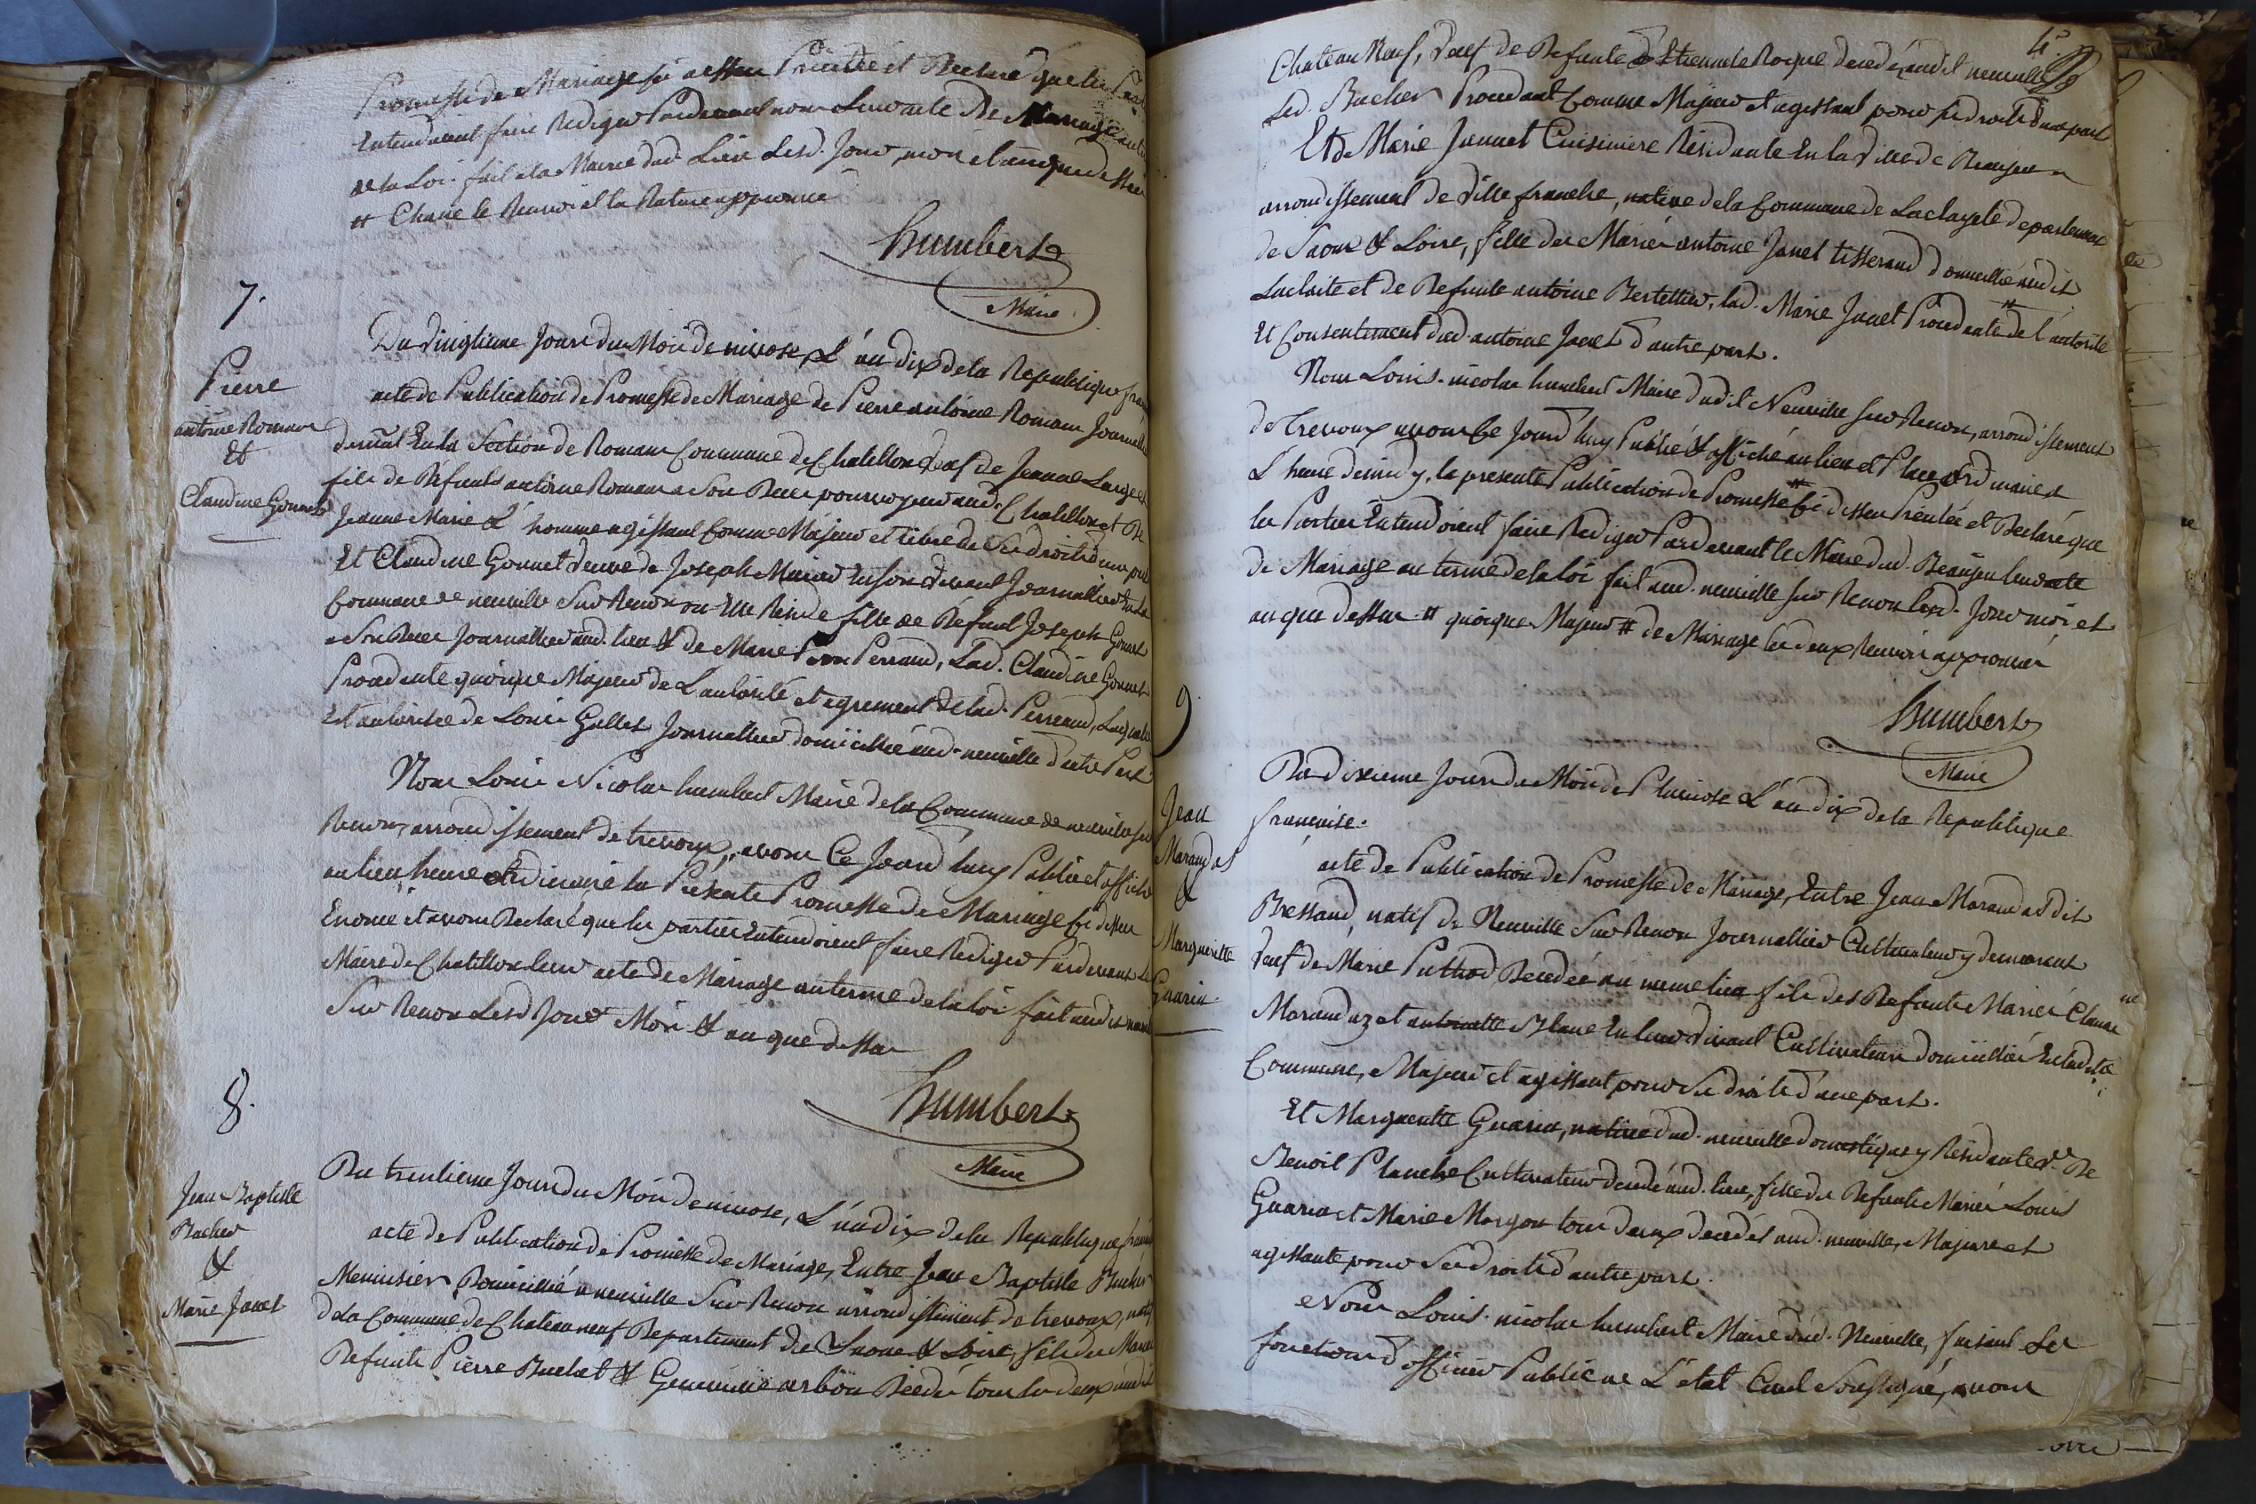 Promesse de Mariage si dessus et Declaré que les
Entendoient faire Rediger Pardevant nous Leur acte De Mariage
de la Loi fait a la Mairie dud. Lieu Lesd. Jour, moi et an que dessus
# Chane le Renvoi et la Rature approuvé
humbert
Maire
7.
Pierre
antoine Romans
Et
Claudine Gonnet
Du Vingtieme Jour du Moi de nivose, L'an dix de la Republique
acte de Publication de Promesse de Mariage de Pierre antoine Romans Journallier
demt. En la Section de Romans Commune de Chatillon Veuf de Jeanne Large et
fils de Defunts antoine Romans a Son Deces pourvoyeur aud. Chatillon et De
Jeanne Marie L'homme agissant Comme Majeur et libre de Ses droits d'une part
Et Claudine Gonnet Veuve de Joseph Murier En son Vivant Journallier En la
Commune de neuville Sur Renon ou Elle Reside fille de Défunt Joseph Gonnet
a Son Deces Journallier aud. lieu & de Marie Perraud, Lad. Claudine Gonnet
Procedente quoique Majeur de L'autorité et agrement de lad. Perraud, Laquelle
Est autorisée de Louis Gallet Journallier domicillié aud. neuville d'autre Part
Nous Louis Nicolas humbert Maire de la Commune de neuville sur
Renon, arrondissement de trevoux, avons Ce Jourd'huy Publié et affiché
au lieu heure ordinaire la Presente Promesse de Mariage Ci dessus
Enoncé et avons Declaré que les parties Entendoient faire Rediger Pardevant Le
Maire de Chatillon leur acte de Mariage au terme de la loi fait audit neuville
Sur Renon Lesd Jour Moi & an que dessus
humbert
Maire
8.
Jean Baptiste
Bucher
&
Marie Janet
Du trentieme Jour du Moi de nivose, L'an dix de la Republique
acte de Publication de Promesse de Mariage, Entre Jean Baptiste Bucher
Menuisier Domicillié a neuville Sur Renon arrondissement de trevoux, natif
de la Commune de Chateauneuf Departement de Saone & Loire, fils de Mariés
Defunts Pierre Buchet & Genevieve Decedé tous les deux audit
4e.
Chateau Neuf, Veuf de Defunte Etiennete Roque decedé, audit neuville
Led. Bucher Procedant Comme Majeur et agissant pour ses droits d'une part
Et de Marie Jannet Cuisiniere Residante En la Ville de Beaujeu
arrondissement de Ville franche, native de la Commune de Laclayete departement
de Saone & Loire, fille des Mariés antoine Janet tisserand domicillié audit
Laclaite et de Defunte antoine Bertellier, lad. Marie Janet Procedante # de l'autorité
Et Consentement dud antoine Janet d'autre part.
Nous Louis. nicolas humbert Maire dudit Neuville sur Renon, arrondissement
de Trevoux avons Ce Jourd'huy Publié & affiché au lieu et Place ordinaires
L'heure de midy, la presente Publication de Promesse # Ci dessus et Declaré que
les Parties Entendoient faire Rediger Pardevant le Maire dud. Beaujeu leur acte
de Mariage au terme de la loi fait aud. neuville sur Renon lesd. Jour moi et
an que dessus # quoique Majeur # de Mariage les deux Renvois approuvés
humbert
Maire
9.
Jean
Marandas
&
Marguerite
Guarin
Du dixieme Jour du Moi de Pluviose L'an dix de la Republique
francaise.
acte de Publication de Promesse de Mariage, Entre Jean Marandas dit
Bressand, natif de Neuville Sur Renon Journallier Cultivateur y demeurant
Veuf de Marie Puthod Decedée au meme lieu fils des Defunts Mariés Claude
Marandaz et antoinette Blanc En leur Vivant Cultivateurs domicilliés En ladite
Commune, Majeur et agissant pour Ses droits d'une part.
Et Marguerite Guarin, native dud. neuville domestique y Residante ve. De
Benoit Planche Cultivateur decedé aud. lieu, fille des Defunts Mariés Louis
Guarin et Marie Morgon tous deux decedés aud. neuville, Majeure et
agissante pour Ses droits d'autre part.
Nous Louis. nicolas humbert Maire dud. Neuville, faisant Les
fonctions d'officier Public de L'état Civil Soussigné, avons